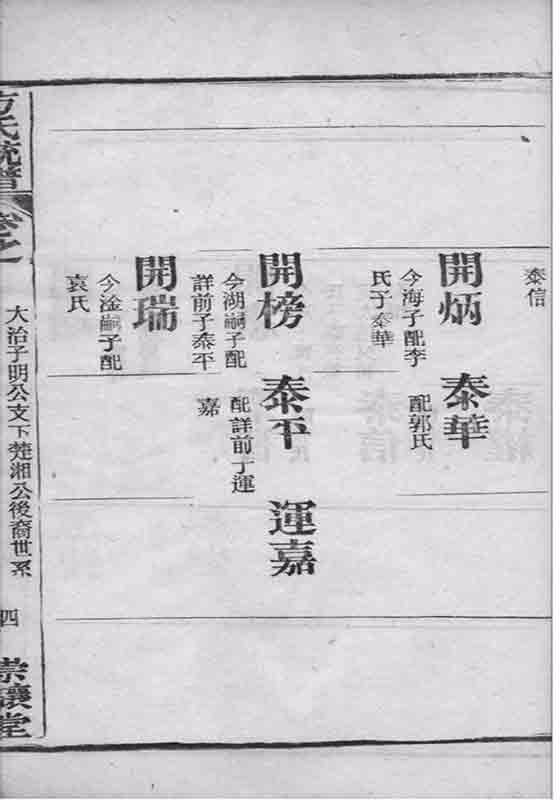 泰信
開炳
今海子配李
氏子泰華
泰華
配郭氏
開榜
今湖嗣子配
詳前子泰平
泰平
配詳前子運
嘉
運嘉
開瑞
今淦嗣子配
袁氏
方氏統譜
卷之
大冶子明公支下楚湘公後裔世系
四
崇讓堂